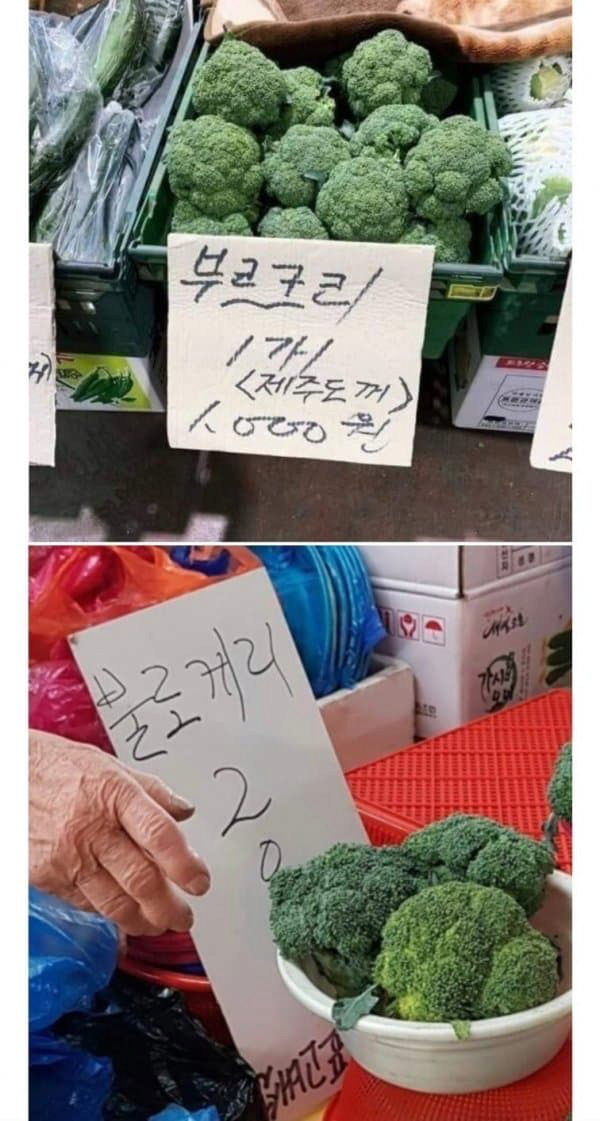 부르크리
1개
<제주도꺼>
1,000원
불로케리
2
0
가시